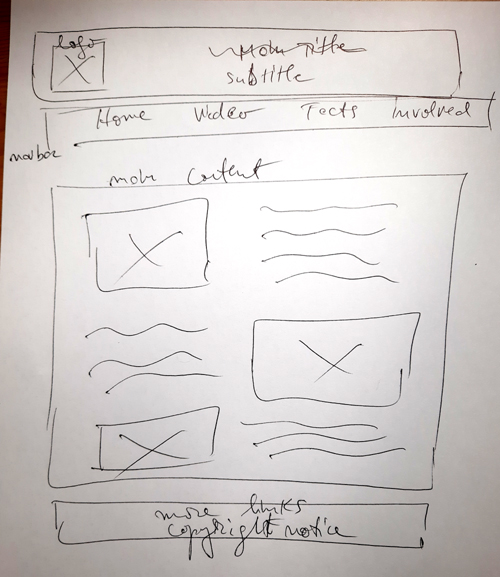 logo
Main Title
subtitle
Home Video Facts Involved
navbar
main content
more links
copyright notice